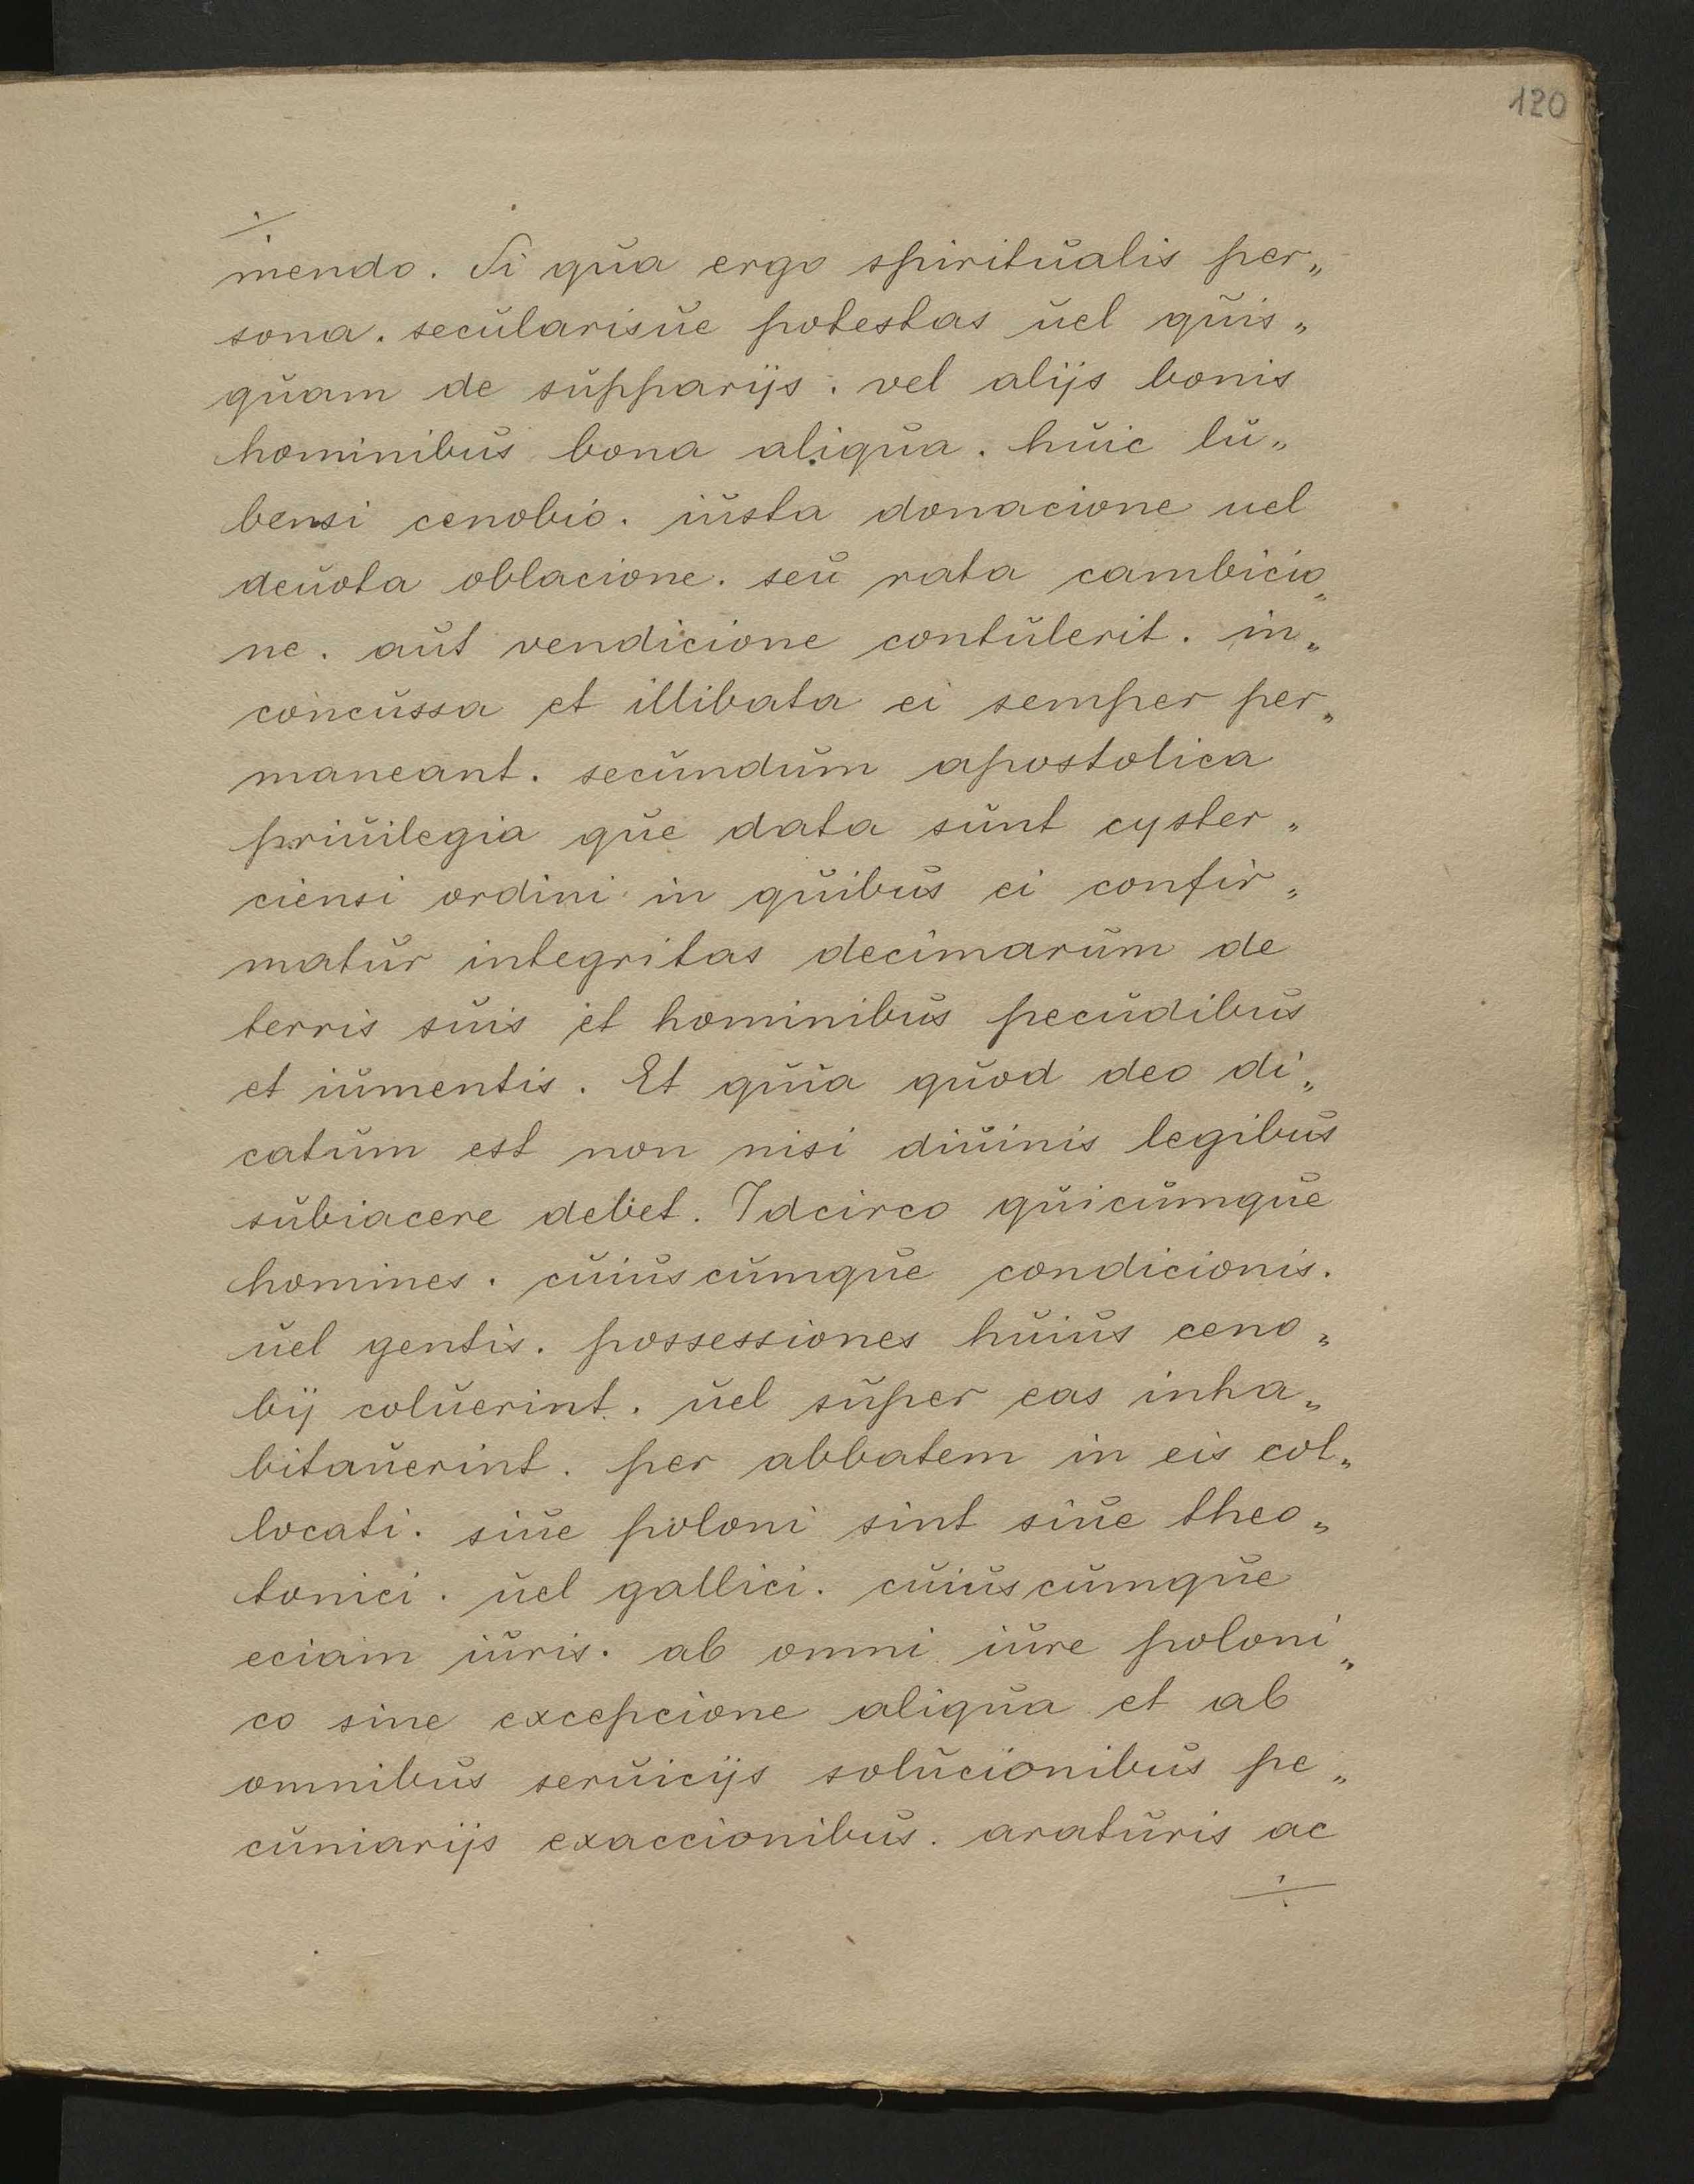 120
÷
mendo. Si qua ergo spiritualis per„
sona. secularisue potestas uel quis„
quam de supparijs. vel alijs bonis
hominibus bona aliqua. huic lu„
bensi cenobio. iusta donacione uel
deuota oblacione. seu rata cambicio„
ne. aut vendicione contulerit. in„
concussa et illibata ei semper per„
maneant. secundum apostolica
priuilegia que data sunt cyster„
ciensi ordini in quibus ei confir„
matur integritas decimarum de
terris suis et hominibus pecudibus
et iumentis. Et quia quod deo di„
catum est non nisi diuinis legibus
subiacere debet. Idcirco quicumque
homines. cuiuscumque condicionis.
uel gentis. possessiones huius ceno„
bij coluerint. uel super eas inha„
bitauerint. per abbatem in eis col„
locati. siue poloni sint siue theo„
tonici. uel gallici. cuiuscumque
eciam iuris. ab omni iure poloni„
co sine excepcione aliqua et ab
omnibus seruicijs solucionibus pe„
cuniarijs exaccionibus. araturis ac
÷